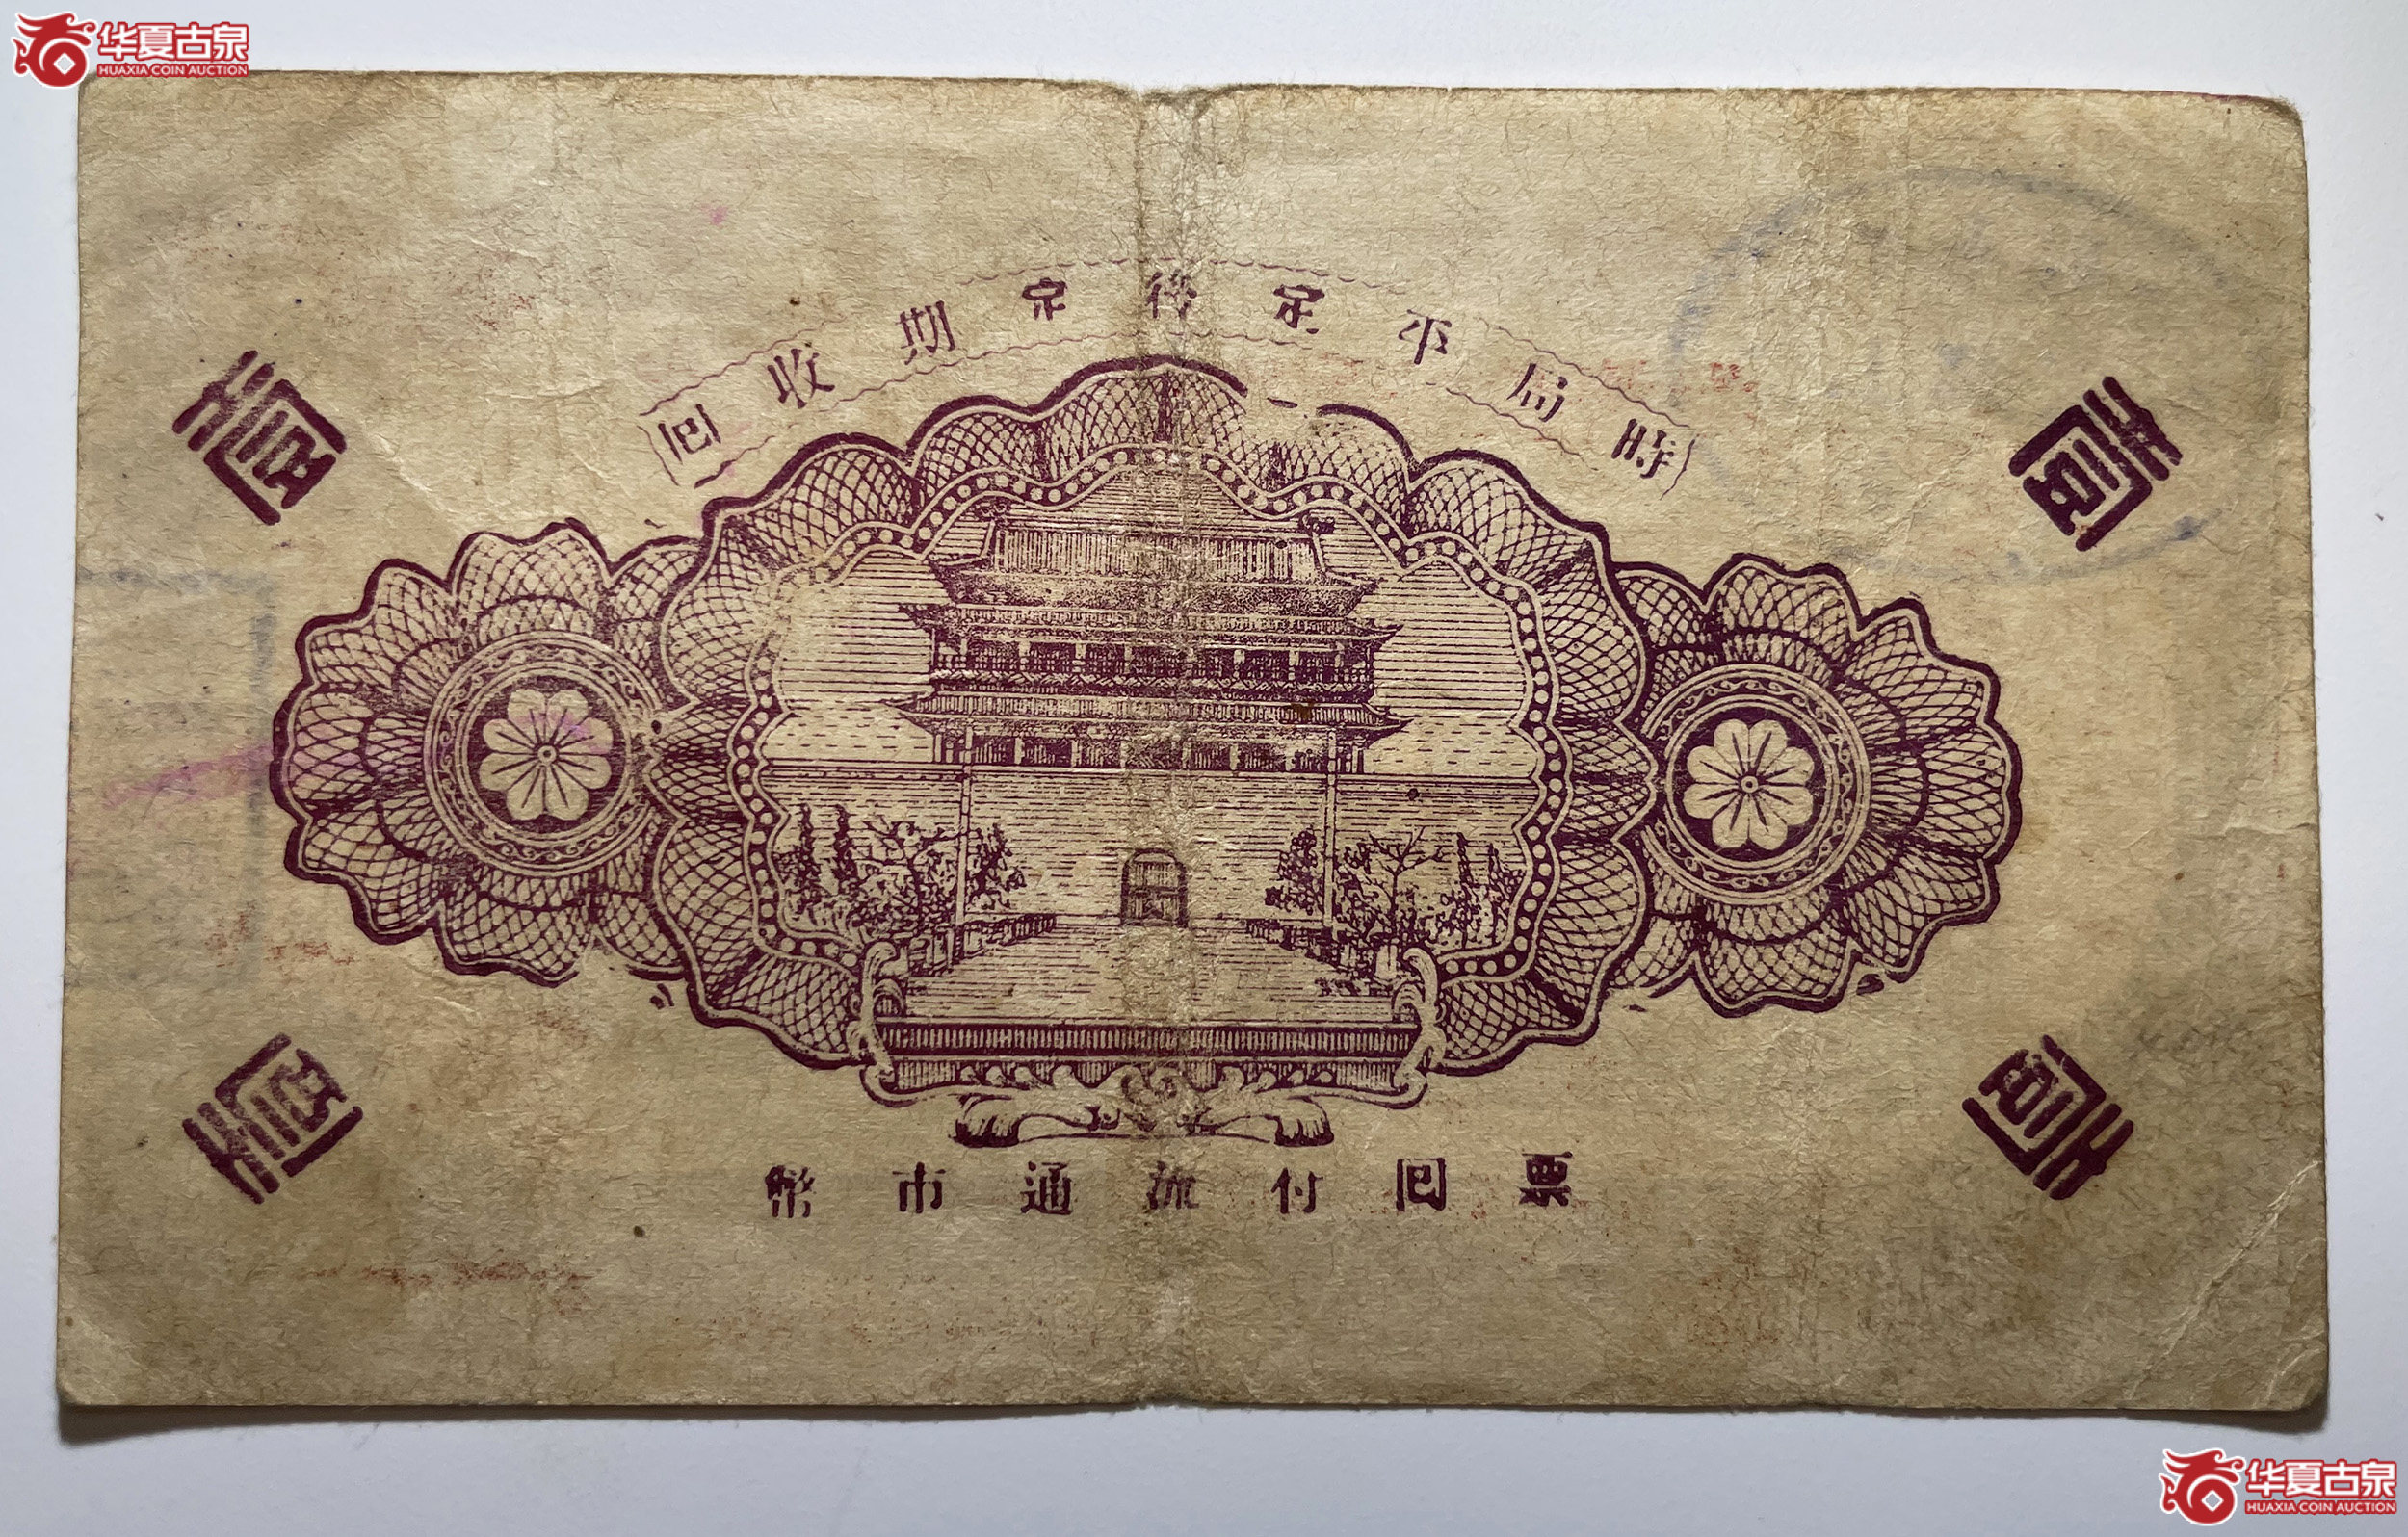 华夏古泉
HUAXIA COIN AUCTION
時局平定待定期收囘
票囘付流通市幣
华夏古泉
HUAXIA COIN AUCTION